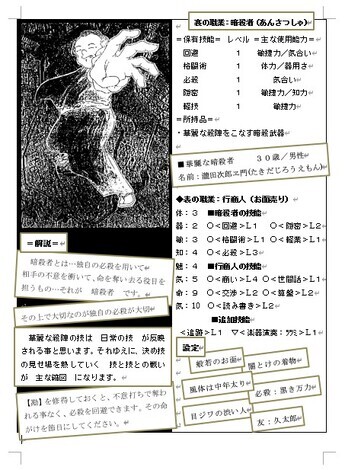 裏の職業:暗殺者(あんさつしゃ)
=保有技能= レベル =主な使用能力=
回避 1 敏捷力/気合い
格闘術 1 体力/器用さ
必殺 1 気合い
隠密 1 敏捷力/知力
軽技 1 敏捷力
=所持品=
・華麗な絵陣をこなす暗殺武器
■華麗な暗殺者 30歳/男性
名前:瀧田次郎ヱ門(たきだじろうえもん)
◆表の職業:行商人(お面売り)
体:3 ■暗殺者の技能
器:2 ○<回避>L1 ○<隠密>L2
敏:3 ○<格闘術>L1 ○<軽業>L1
知:4 ○<必殺>L3
魅:4 ■行商人の技能
気:5 ○<商い>L4 ○<世間話>L1
命:9 ○<交渉>L2 ○<算盤>L2
気:10 ○<読み書き>L2
■追加技能
<追跡>L1 ▽<楽器演奏:>L1
設定
般若のお面
闇とけの着物
風体は中年太り
必殺:黒き万力
目ジワの渋い人
友:久太郎
=解説=
暗殺者とは…独自の必殺を用いて
相手の不意を衝いて、命を奪い去る役目を
担うもの…それが 暗殺者 です。
その上で大切なのが独自の必殺が大切
華麗な絵陣の技は 日常の技 が反映
される事と思います。それゆえに、決め技
の見せ場を熱していく 技と技との戦い
が 主な確図 になります。
【勘】を修得しておくと、不意打ちで奪わ
れる事なく、必殺を回避できます。その命
がけを節目にしてください。